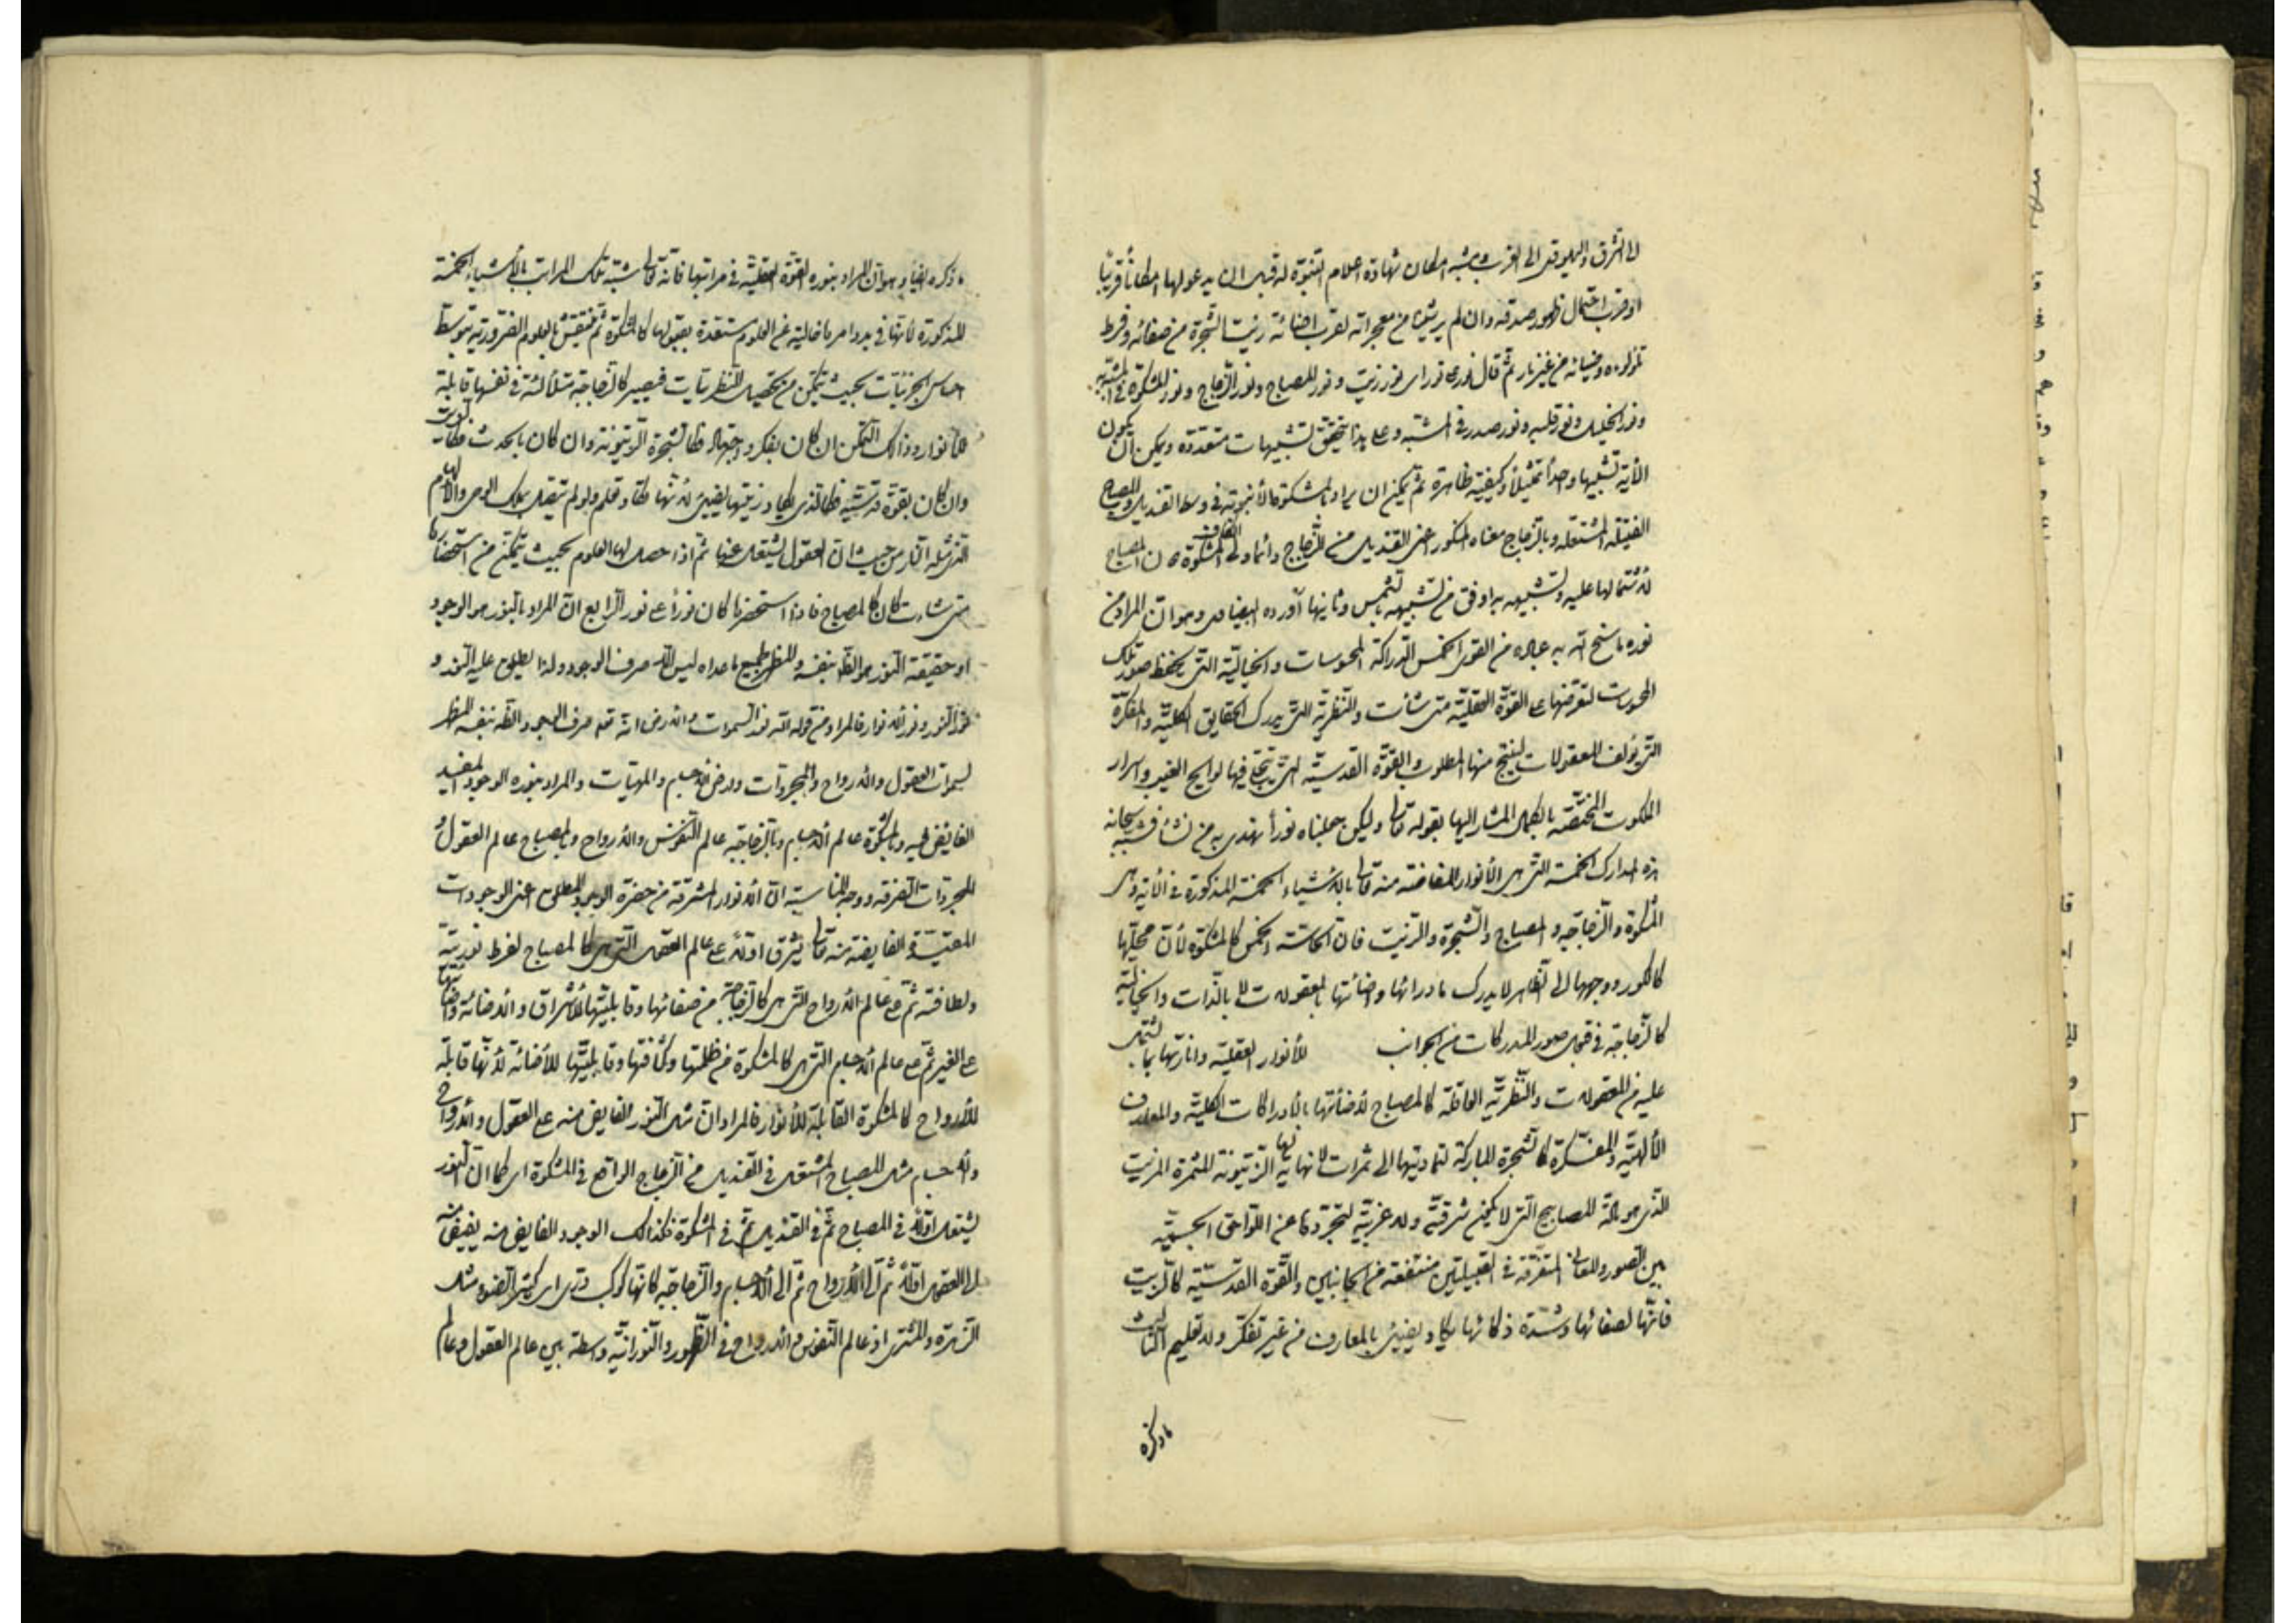 الى الشرق واليهود الى الغرب ويشبه امكان شهادة اعلام النبوة له قبل ان يدعو لها امكاناً قريباً
او قرب احتمال ظهور صدقه وان لم ير شيئا من معجزاته لقرب اضائة زيت الشجرة من صفائه وفرط
تلؤلوءه وضيائه من غير نار ثم قال نور على نور اى نور زيت ونور المصباح ونور الزجاج ونور المشكوة فى المشبه به
ونور الخليل ونور قلبه ونور صدره فى المشبه وعلى هذا يتحقق تشبيهات متعددة ويمكن ان يكون
الآية تشبيها واحداً تمثيلاً وكيفيته ظاهرة ثم يمكن ان يراد بالمشكوة الأنبوبة فى وسط القنديل وبالمصباح
الفتيلة المشتعلة وبالزجاج معناه المذكور اعنى القنديل من الزجاج وانما ولى الكاف المشكوة لا المصباح
لاشتمالها عليه وتشبيهه به اوفق من تشبيهه بالشمس وثانيها ما أورده البيضاوى وهو ان المراد من
نوره ما منح الله به عباده من القوى الخمس الدراكة المحسوسات والخيالية التى يحفظ صور تلك
المحسوسات لتعرضها على القوة العقلية متى شائت والنظرية التى يدرك الحقايق الكلية والمفكرة
التى يؤلف المعقولات لينتج منها المطلوب والقوة القدسية التى يتجلى فيها لوايح الغيب واسرار
الملكوت المختصة بالكمل المشار اليها بقوله تعالى ولكن جعلناه نوراً نهدى به من نشاء فشبه سبحانه
هذه المدارك الخمسة التى هى الأنوار المفاضة منه تعالى بالاشياء الخمسة المذكورة فى الآية وهى
المشكوة والزجاجة والمصباح والشجرة والزيت فان الحاسة والخمس كالمشكوة لأن محلها
كالكور ووجهها الى الظاهر لا يدرك ماورائها واضائتها بالمعقولات لا بالذات والخيالية
كالزجاجة فى قبول صور المدركات من الجوانب للأنوار العقلية وانارتها بما تشتمل
عليه من المعقولات والنظرية العاقلة كالمصباح لاضائتها بالأدراكات الكلية والمعارف
الألهية والمفكرة كالشجرة المباركة لتماديتها الى ثمرات لا نهاية لها الزيتونة المثمرة الزيت
الذى هو مادة المصابيح التى لا يكون شرقية ولا غربية لتجردها عن اللواحق الجسمية
بين الصور والمعانى المتفرقة فى القبيلتين منتفعة من الجانبين والقوة القدسية كالزيت
فانها لصفائها وشدة ذكائها يكاد يضيئ بالمعارف من غير تفكر ولا تعليم الثالث
ما ذكره
ما ذكره ايضاً وهو ان المراد بنوره القوة العقلية فى مراتبها فانه تعالى شبه تلك المراتب بالأشياء الخمسة
المذكورة لأنها فى بدو امرها خالية عن العلوم مستعدة بقبولها كالمشكوة ثم ينتقش بالعلوم الضرورية بتوسط
احساس الجزئيات بحيث يتمكن من تحصيل النظريات فيصير كالزجاجة متلألئة فى نفسها قابلة
للأنوار وذلك التمكن ان كان بفكر واجتهاد فكالشجرة الزيتونة وان كان بالحدس فكالزيت
وان كان بقوة قدسية فكالذى يكاد زيتها يضيئ لانها تكاد تعلم ولو لم يتصل بملك الوحى والألهام
الذى مثله النار من حيث ان العقول يشتعل عنها ثم اذا حصل لها العلوم بحيث يتمكن من استحضارها
متى شاءت كان كالمصباح فاذا استحضرها كان نوراً على نور الرابع ان المراد بالنور هو الوجود
اذ حقيقة النور هو الظاهر بنفسه والمظهر لجميع ماعداه ليس الا صرف الوجود ولذا يطلق عليه النور و
نور النور ونور الانوار فالمراد من قوله الله نور السموات والارض انه تعالى صرف الوجود والظاهر بنفسه المظهر
لسموات العقول والارواح والمجردات ولارض الاجسام والمهيات والمراد بنوره الوجود المفيد
الفايض فيه وبالمشكوة عالم الاجسام وبالزجاجة عالم النفوس والارواح وبالمصباح عالم العقول
المجردات الصرفة ووجه المناسبة ان الانوار المشرقة من حضرة الوجود المطلق اعنى الوجودات
المقيدة الفايضة منه تعالى يشرق اولاً على عالم العقل التى هى كالمصباح لفرط نوريته
ولطافته ثم على عالم الارواح التى هى كالزجاجة من صفائها وقابليتها للأشراق والاضائة وافاضتها
على الغير ثم على عالم الاجسام التى هى كالمشكوة من ظلمتها وكثافتها وقابليتها للأضائة لأنها قابلة
للأرواح كالمشكوة القابلة للأنوار فالمراد ان مثل النور الفايض منه على العقول والارواح
والاجسام مثل المصباح المشتعل فى القنديل من الزجاج الواقع فى المشكوة اى كما ان النور
يشتعل اولاً فى المصباح ثم فى القنديل ثم فى المشكوة فكذلك الوجود الفايض منه يفيض منه
الى العقول اولاً ثم الى الأرواح ثم الى الأجسام والزجاجة كانها كوكب درى اى كثير الضوء مثل
الزهرة والمشترى اذ عالم النفوس والارواح فى الظهور والنورانية واسطة بين عالم العقول وعالم